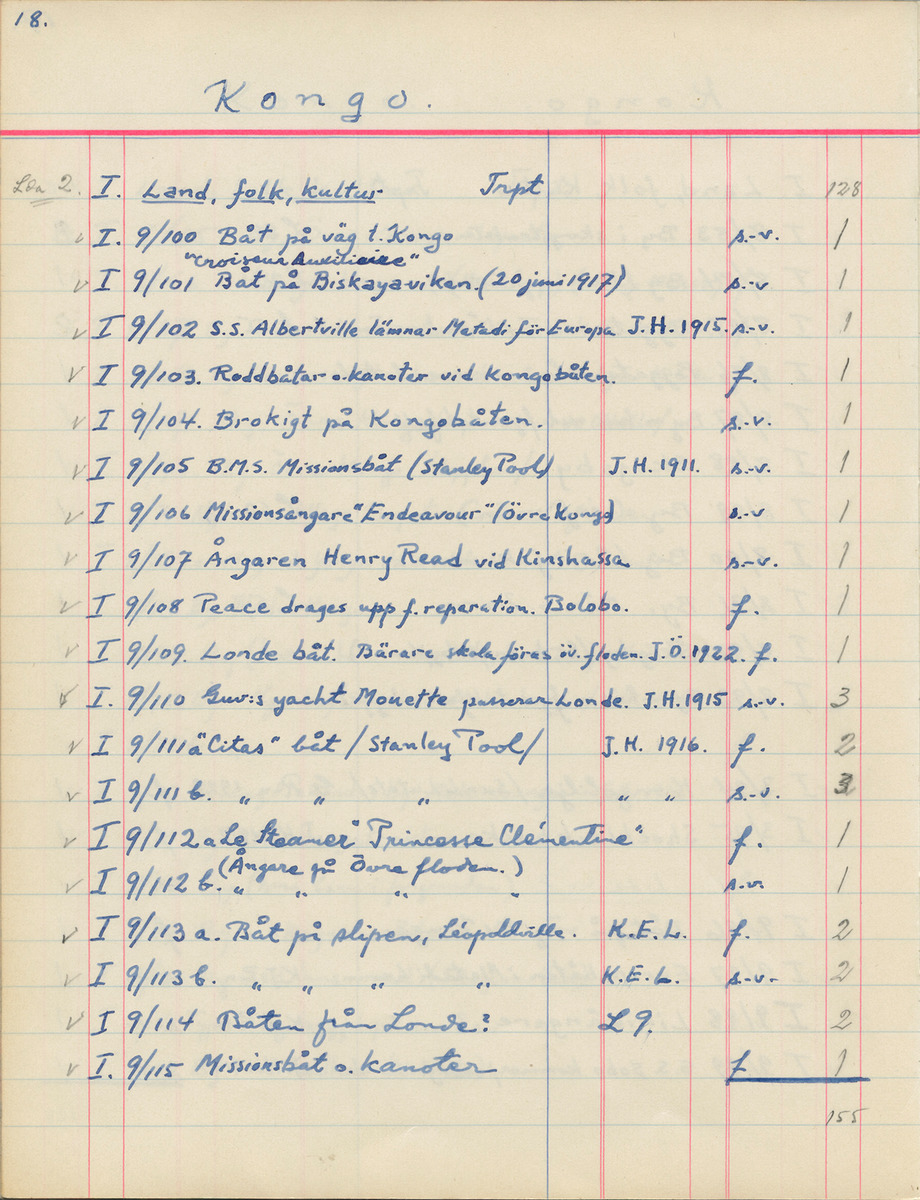 18.
Kongo.
Låda 2. I. Land, folk, kultur Trpt 128
v I. 9/100 Båt på väg t. Kongo s.-v. 1
"Croiseur Auxiliaire"
v I 9/101 Båt på Biskayaviken. (20 juni 1917) s.-v 1
v I 9/102 S.S. Albertville lämnar Matadi för Europa J.H. 1915. s.-v. 1
v I 9/103. Roddbåtar o. kanoter vid Kongobåten. f. 1
v I 9/104. Brokigt på Kongobåten. s.-v. 1
v I 9/105 B.M.S. Missionsbåt (Stanley Pool) J.H. 1911. s.-v. 1
v I 9/106 Missionsångare "Endeavour" (Övre Kongo) s.-v 1
v I 9/107 Ångaren Henry Read vid Kinshassa s.-v. 1
v I 9/108 Peace drages upp f. reparation. Bolobo. f. 1
v I 9/109. Londe båt. Bärare skola föras öv. floden. J.Ö. 1922. f. 1
v I. 9/110 Guv:s yacht Monette passerar Londe. J.H. 1915 s.-v. 3
v I 9/111 a "Citas" båt /Stanley Pool/ J.H. 1916. f. 2
v I 9/111 b. " " " " " s.-v. 3
v I 9/112 a Le Steamer "Princesse Clémentine" f. 1
(Ångare på Övre floden.)
v I 9/112 b. " " " " s.v. 1
v I 9/113 a. Båt på slipen, Léopoldville. K.E.L. f. 2
v I 9/113 b. " " " " K.E.L. s.-v. 2
v I 9/114 Båten från Londe? L 9. 2
v I. 9/115 Missionsbåt o. kanoter f 1
155